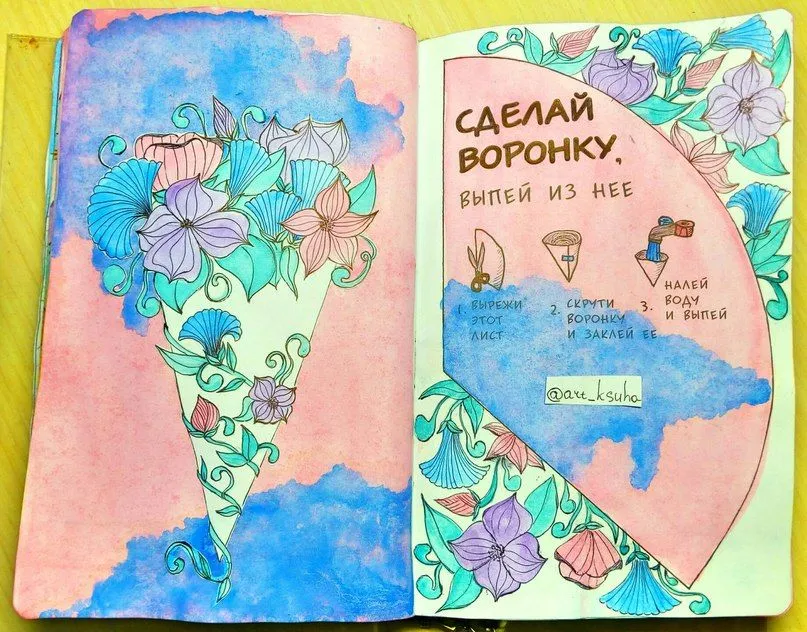 СДЕЛАЙ
ВОРОНКУ,
ВЫПЕЙ ИЗ НЕЕ
1. ВЫРЕЖИ
ЭТОТ
ЛИСТ
2. СКРУТИ
ВОРОНКУ
И ЗАКЛЕЙ ЕЕ
3. НАЛЕЙ
ВОДУ
И ВЫПЕЙ
@art_ksuha